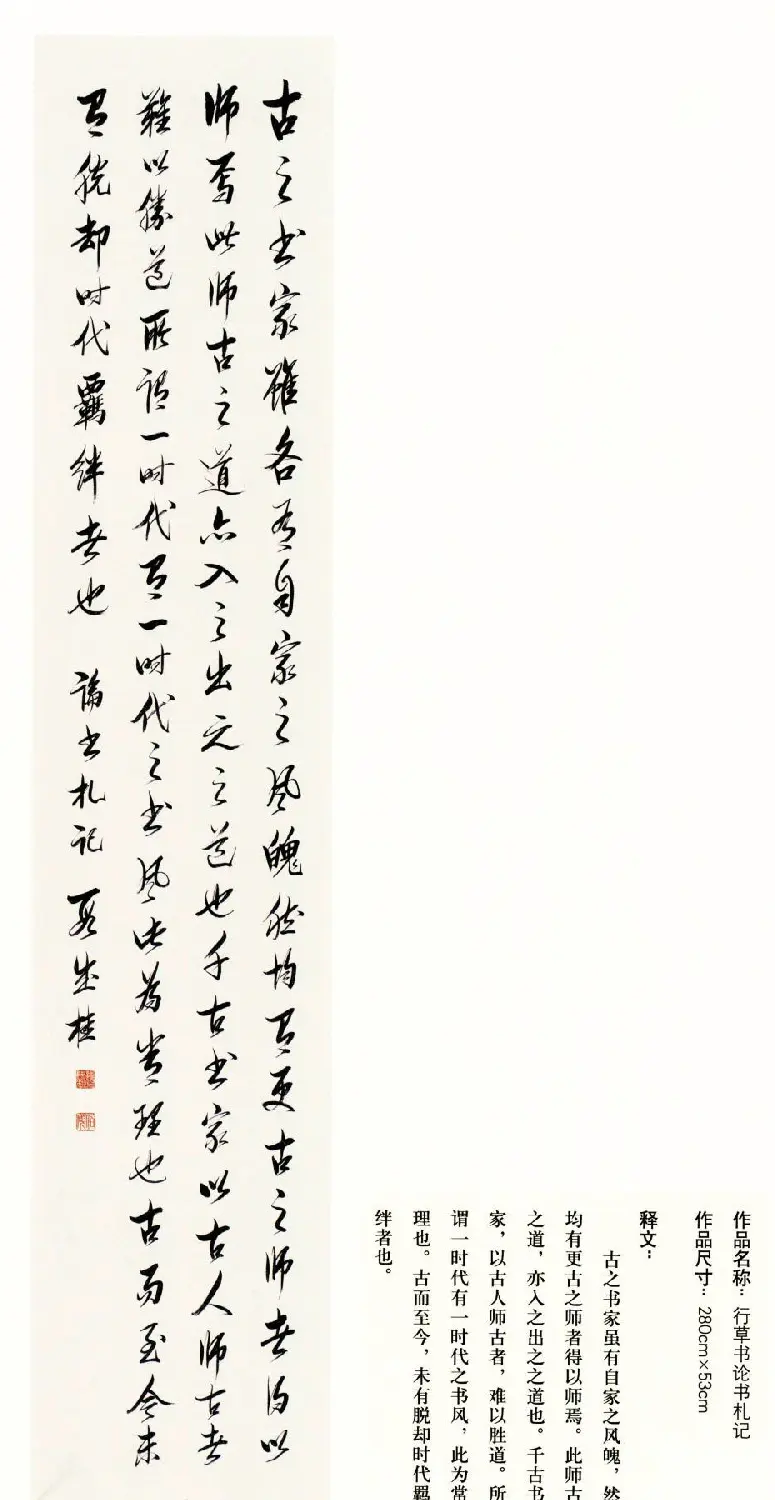 古之书家雖各有自家之风魄然均有更古之师者得以
师焉此师古之道亦入之出之之道也千古书家以古人师古者
難以勝道所谓一时代有一时代之书风此为常理也古而至今未
有脱却时代羁绊者也 论书札记
作品名称：行草书论书札记
作品尺寸：280cm×53cm
释文：
古之书家虽有自家之风魄，然
均有更古之师者得以师焉。此师古
之道，亦入之出之之道也。千古书
家，以古人师古者，难以胜道。所
谓一时代有一时代之书风，此为常
理也。古而至今，未有脱却时代羁
绊者也。